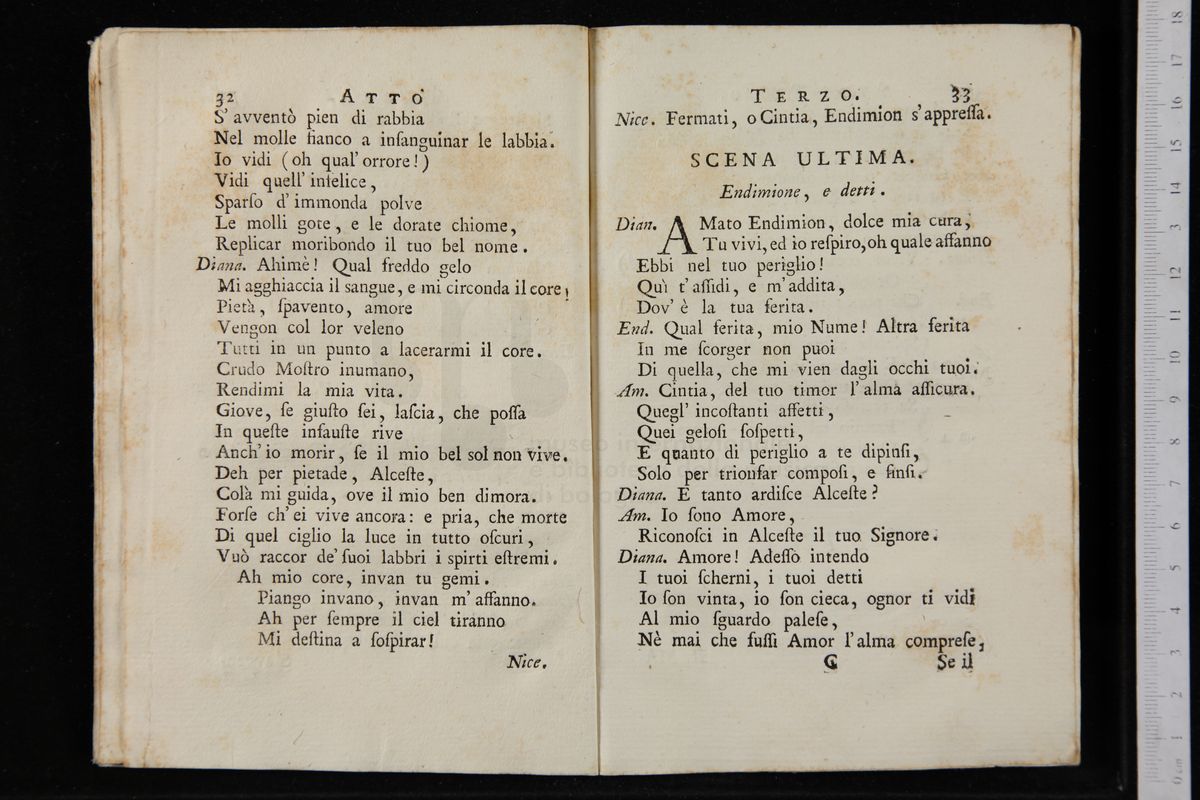 32 ATTO
S' avventò pien di rabbia
Nel molle fianco a inſanguinar le labbia.
Io vidi (oh qual' orrore!)
Vidi quell' infelice,
Sparſo d' immonda polve
Le molli gote, e le dorate chiome,
Replicar moribondo il tuo bel nome.
Diana. Ahimè! Qual freddo gelo
Mi agghiaccia il sangue, e mi circonda il core,
Pietà, ſpavento, amore
Vengon col lor veleno
Tutti in un punto a lacerarmi il core.
Crudo Moſtro inumano,
Rendimi la mia vita.
Giove, ſe giuſto ſei, laſcia, che poſſa
In queſte infauſte rive
Anch' io morir, ſe il mio bel sol non vive.
Deh per pietade, Alceſte,
Colà mi guida, ove il mio ben dimora.
Forſe ch' ei vive ancora: e pria, che morte
Di quel ciglio la luce in tutto oſcuri,
Vuò raccor de' ſuoi labbri i spirti eſtremi.
Ah mio core, invan tu gemi.
Piango invano, invan m' affanno.
Ah per ſempre il ciel tiranno
Mi deſtina a ſoſpirar!
Nice.
TERZO. 33
Nice. Fermati, o Cintia, Endimion s' appreſſa.
SCENA ULTIMA.
Endimione, e detti.
Dian. AMato Endimion, dolce mia cura,
Tu vivi, ed io reſpiro, oh quale affanno
Ebbi nel tuo periglio!
Quì t' aſſidi, e m' addita,
Dov' è la tua ferita.
End. Qual ferita, mio Nume! Altra ferita
In me ſcorger non puoi
Di quella, che mi vien dagli occhi tuoi.
Am. Cintia, del tuo timor l' alma aſſicura.
Quegl' incoſtanti affetti,
Quei geloſi ſoſpetti,
E quanto di periglio a te dipinſi,
Solo per trionfar compoſi, e finſi.
Diana. E tanto ardiſce Alceſte?
Am. Io ſono Amore,
Riconoſci in Alceſte il tuo Signore.
Diana. Amore! Adeſſo intendo
I tuoi ſcherni, i tuoi detti
Io ſon vinta, io ſon cieca, ognor ti vidi
Al mio ſguardo paleſe,
Nè mai che fuſſi Amor l' alma compreſe,
C Se il